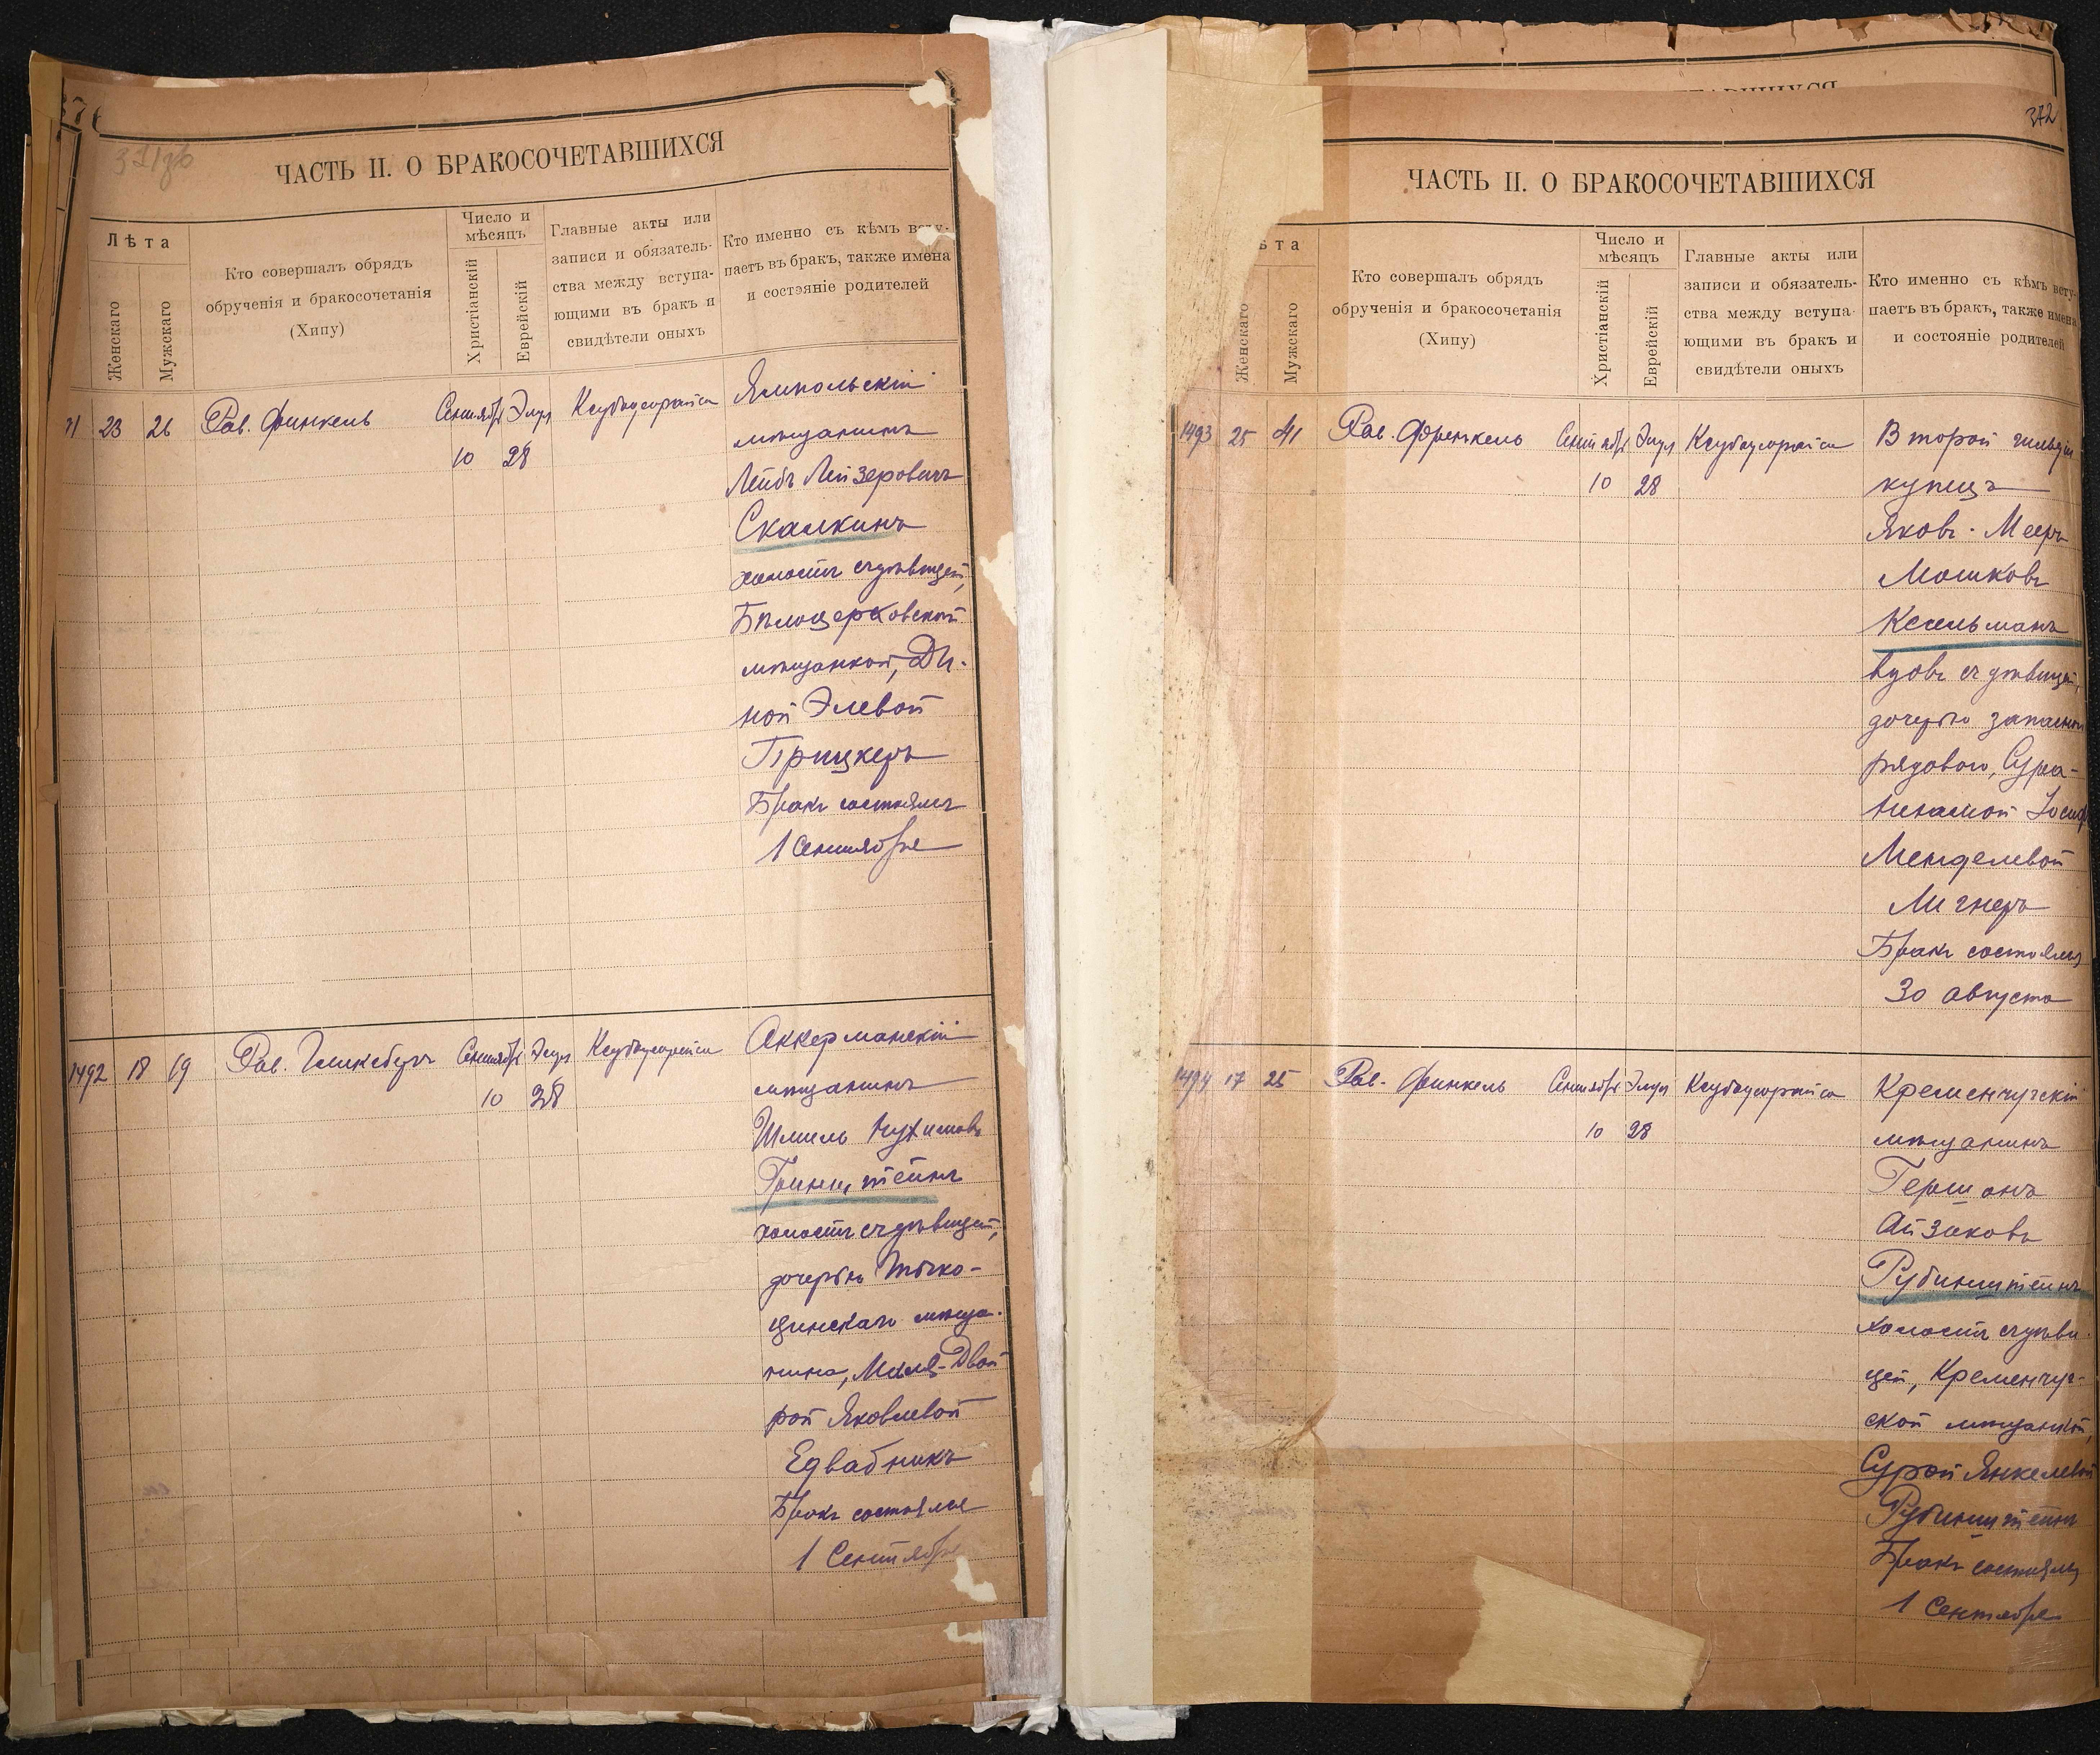 371об
ЧАСТЬ II. О БРАКОСОЧЕТАВШИХСЯ
Лѣта
Женскаго
Мужскаго
Кто совершалъ обрядъ
обрученія и бракосочетанія
(Хипу)
Число и
мѣсяцъ
Христіанскій
Еврейскій
Главные акты или
записи и обязатель-
ства между вступа-
ющими въ бракъ и
свидѣтели оныхъ
Кто именно съ кѣмъ всту-
паетъ въ бракъ, также имена
и состояніе родителей
91 23 26 Рав. Финкель Сентябрь Элул Ксубаусорайса
10 28
Ямпольскій
мѣщанинъ
Лейбъ Лейзеровичъ
Скалкинъ
холостъ съ дѣвицей,
Бѣлоцерковской
мѣщанкой, Ди-
ной Элевой
Прицкеръ
Бракъ состоялся
1 Сентября
1492 18 19 Рав. Сентябрь Элул Ксубаусорайса
10 28
Аккерманскій
мѣщанинъ
Шмиль Нухимовъ
Гринштейнъ
холостъ съ дѣвицей,
дочерью Тыко-
цинскаго мѣща-
нина, Маля-Двой
рой Яковлевой
Едвабникъ
Бракъ состоялся
1 Сентября
372
ЧАСТЬ II. О БРАКОСОЧЕТАВШИХСЯ
ѣта
Женскаго
Мужскаго
Кто совершалъ обрядъ
обрученія и бракосочетанія
(Хипу)
Число и
мѣсяцъ
Христіанскій
Еврейскій
Главные акты или
записи и обязатель-
ства между вступа-
ющими въ бракъ и
свидѣтели оныхъ
Кто именно съ кѣмъ всту-
паетъ въ бракъ, также имена
и состояніе родителей
1493 25 41 Рав. Френкель Сентябрь Элул Ксубаусорайса
10 28
Второй гильдіи
купецъ
Яковъ-Мееръ
Мошковъ
Кесельманъ
вдовъ съ дѣвицей,
дочерью запасного
рядового, Сура-
Нехамой Іосиф
Менделевой
Лигнеръ
Бракъ состоялся
30 августа
1494 17 25 Рав. Финкель Сентябрь Элул Ксубаусорайса
10 28
Кременчугскій
мѣщанинъ
Гершонъ
Айзиковъ
Рубинштейнъ
холостъ съ дѣви-
цей, Кременчуг-
ской мѣщанкой,
Сурой Янкелевой
Рубинштейнъ
Бракъ состоялся
1 Сентября